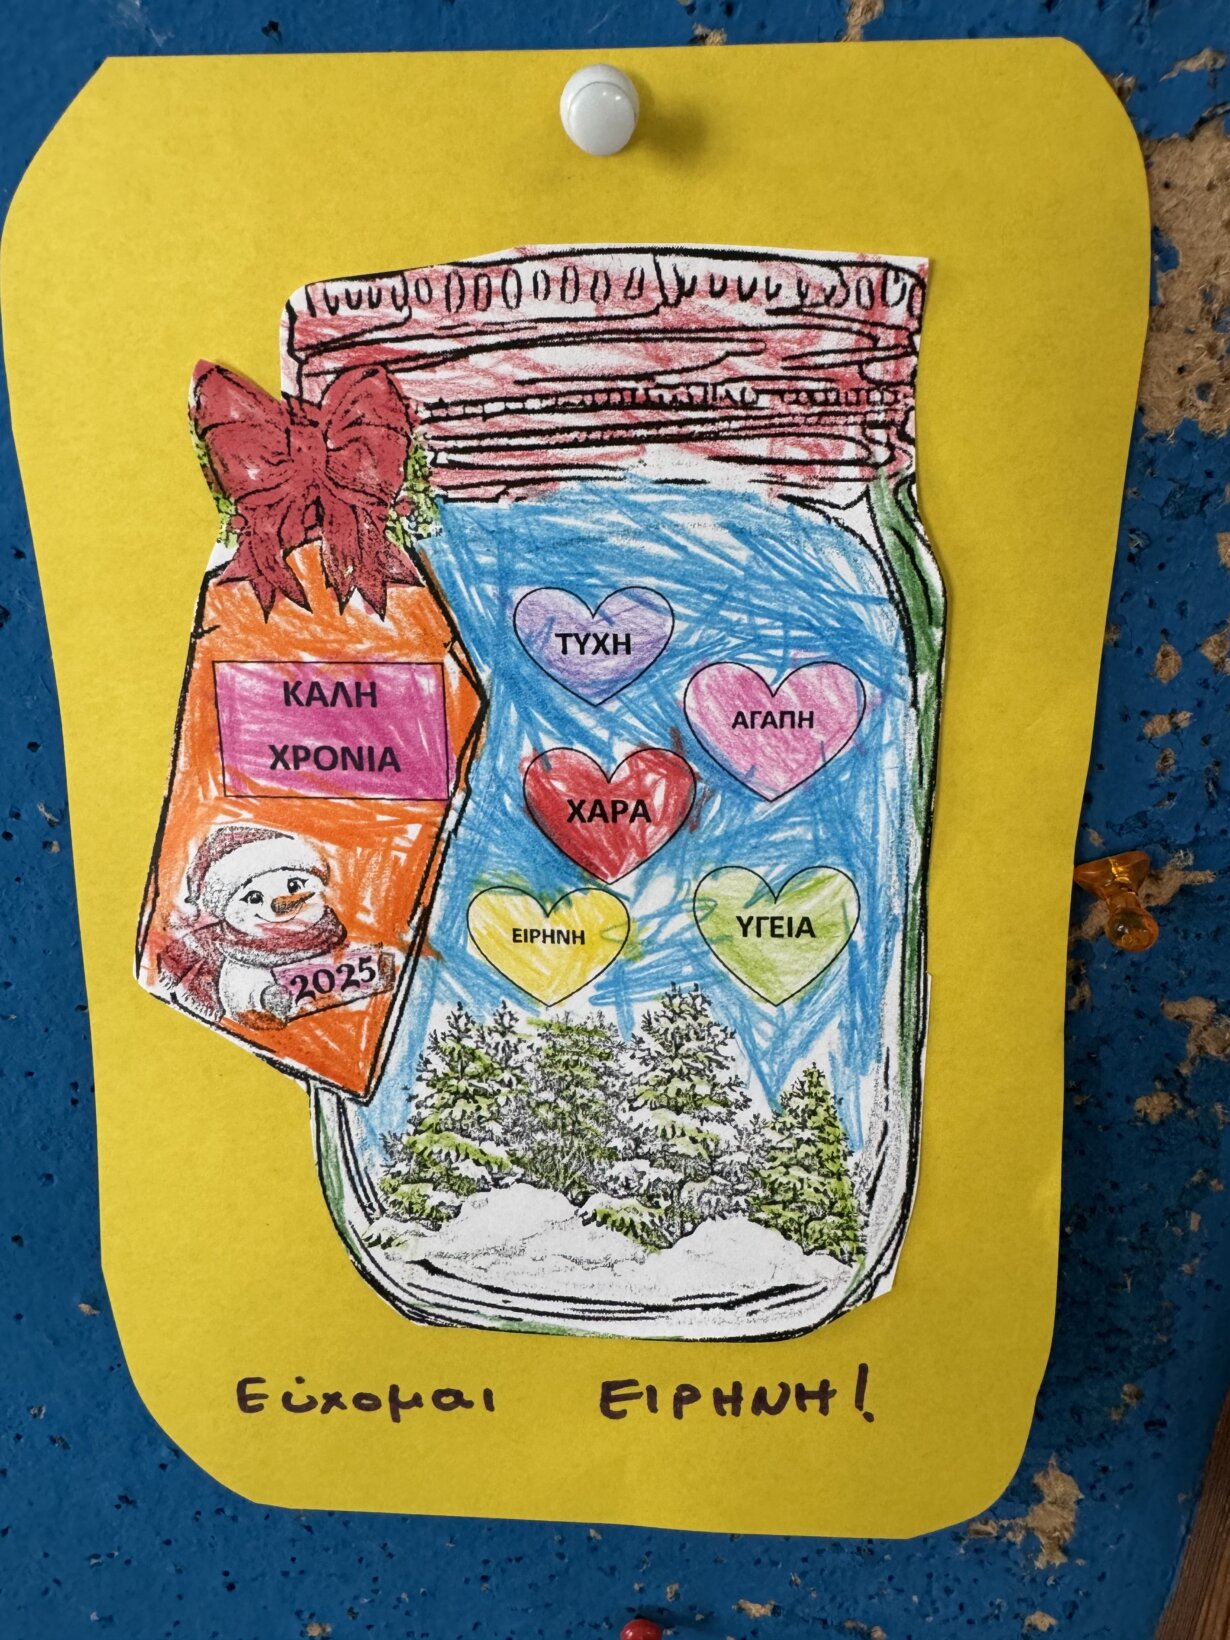 ΚΑΛΗ
ΧΡΟΝΙΑ
2025
ΤΥΧΗ
ΑΓΑΠΗ
ΧΑΡΑ
ΕΙΡΗΝΗ
ΥΓΕΙΑ
Εύχομαι ΕΙΡΗΝΗ!